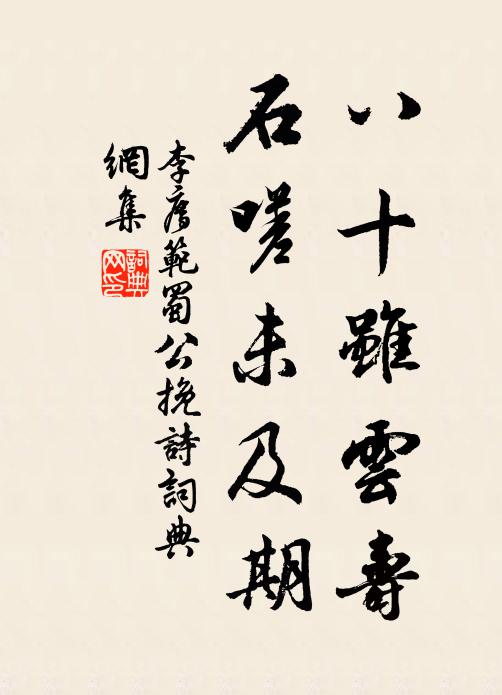 八十雖雲壽
石嗟未及期
李廌範蜀公挽詩詞典
網集
詞典
网印